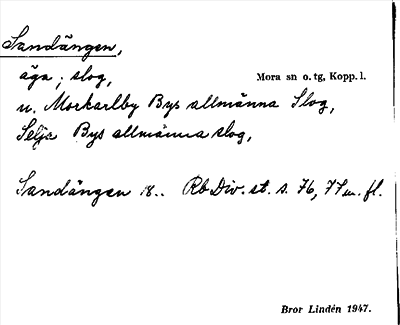 Sandängen,
äga; slog,
Mora sn o. tg, Kopp. l.
u. Morkarlby Bys allmänna Slog,
Selja Bys allmänna slog,
Sandängen 18.. Rb Div. st. s. 76, 77 m. fl.
Bror Lindén 1947.